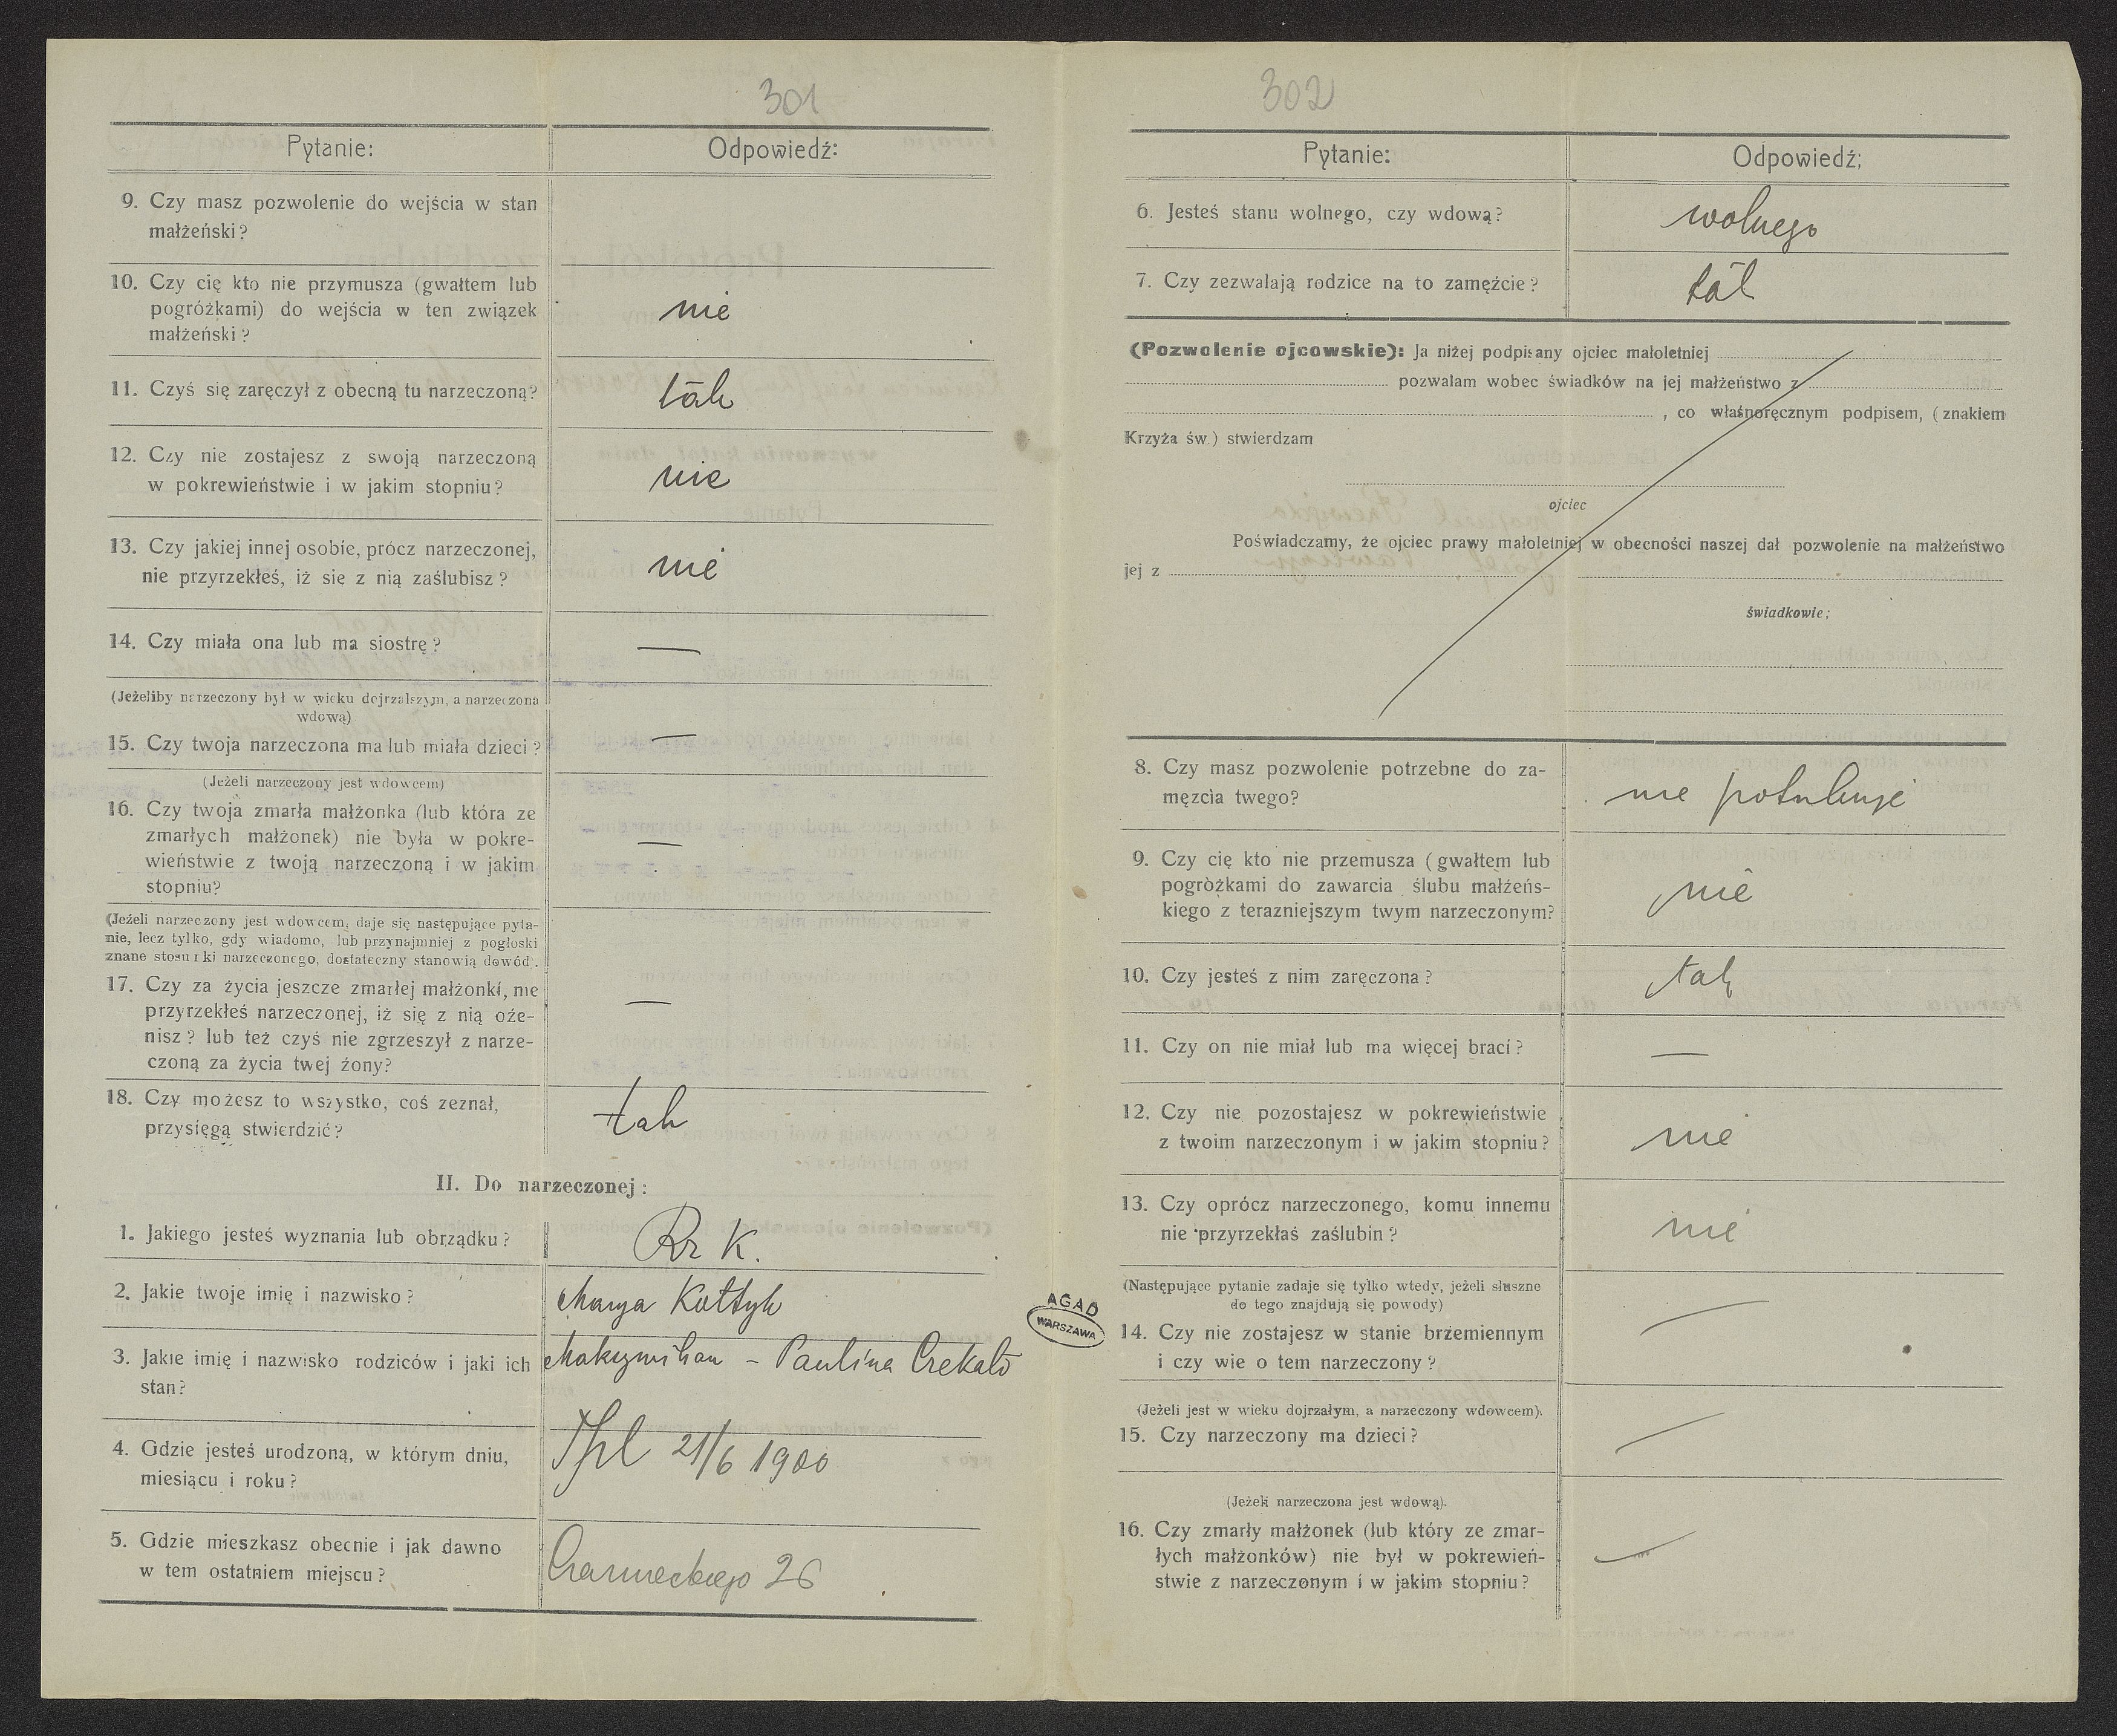 301
Pytanie: Odpowiedź:
9. Czy masz pozwolenie do wejścia w stan
małżeński?
10. Czy cię kto nie przymusza (gwałtem lub
pogróżkami) do wejścia w ten związek
małżeński?
nie
11. Czyś się zaręczył z obecną tu narzeczoną?
tak
12. Czy nie zostajesz z swoją narzeczoną
w pokrewieństwie i w jakim stopniu?
nie
13. Czy jakiej innej osobie, prócz narzeczonej,
nie przyrzekłeś, iż się z nią zaślubisz?
nie
14. Czy miała ona lub ma siostrę?
—
(Jeżeliby narzeczony był w wieku dojrzalszym, a narzeczona
wdową)
15. Czy twoja narzeczona ma lub miała dzieci?
—
(Jeżeli narzeczony jest wdowcem)
16. Czy twoja zmarła małżonka (lub która ze
zmarłych małżonek) nie była w pokre-
wieństwie z twoją narzeczoną i w jakim
stopniu?
—
(Jeżeli narzeczony jest wdowcem, daje się następujące pyta-
nie, lecz tylko, gdy wiadomo, lub przynajmniej z pogłoski
znane stosunki narzeczonego, dostateczny stanowią dowód).
17. Czy za życia jeszcze zmarłej małżonki, nie
przyrzekłeś narzeczonej, iż się z nią oże-
nisz? lub też czyś nie zgrzeszył z narze-
czoną za życia twej żony?
—
18. Czy możesz to wszystko, coś zeznał,
przysięgą stwierdzić?
tak
II. Do narzeczonej:
1. Jakiego jesteś wyznania lub obrządku?
Rz K.
2. Jakie twoje imię i nazwisko?
Marya Kołtyk
3. Jakie imię i nazwisko rodziców i jaki ich
stan?
Maksymilian - Paulina Czekało
4. Gdzie jesteś urodzoną, w którym dniu,
miesiącu i roku?
Tpl 21/6 1900
5. Gdzie mieszkasz obecnie i jak dawno
w tem ostatniem miejscu?
Czarneckiego 26
AGAD
WARSZAWA
302
Pytanie: Odpowiedź:
6. Jesteś stanu wolnego, czy wdową?
wolnego
7. Czy zezwalają rodzice na to zamężcie?
tak
(Pozwolenie ojcowskie): Ja niżej podpisany ojciec małoletniej
pozwalam wobec świadków na jej małżeństwo z
, co własnoręcznym podpisem, (znakiem
Krzyża św.) stwierdzam
ojciec
Poświadczamy, że ojciec prawy małoletniej w obecności naszej dał pozwolenie na małżeństwo
jej z
świadkowie:
8. Czy masz pozwolenie potrzebne do za-
męzcia twego?
nie potrzebuje
9. Czy cię kto nie przemusza (gwałtem lub
pogróżkami do zawarcia ślubu małżeńs-
kiego z terazniejszym twym narzeczonym?
nie
10. Czy jesteś z nim zaręczona?
tak
11. Czy on nie miał lub ma więcej braci?
—
12. Czy nie pozostajesz w pokrewieństwie
z twoim narzeczonym i w jakim stopniu?
nie
13. Czy oprócz narzeczonego, komu innemu
nie przyrzekłaś zaślubin?
nie
(Następujące pytanie zadaje się tylko wtedy, jeżeli słuszne
do tego znajdują się powody)
14. Czy nie zostajesz w stanie brzemiennym
i czy wie o tem narzeczony?
—
(Jeżeli jest w wieku dojrzałym, a narzeczony wdowcem).
15. Czy narzeczony ma dzieci?
—
(Jeżeli narzeczona jest wdową).
16. Czy zmarły małżonek (lub który ze zmar-
łych małżonków) nie był w pokrewień-
stwie z narzeczonym i w jakim stopniu?
—